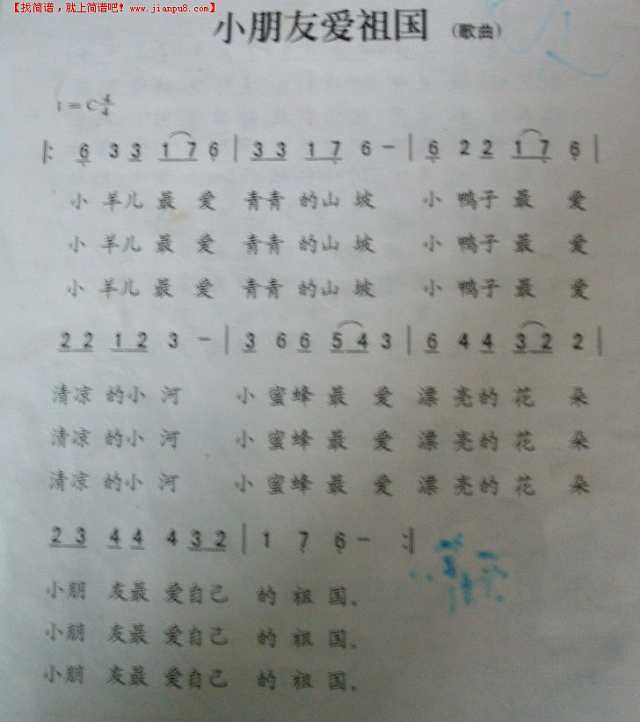 【找简谱，就上简谱吧! www.jianpu8.com】
小朋友爱祖国 （歌曲）
1=C 4/4
‖: 6 3 3 1 7 6 | 3 3 1 7 6 - | 6 2 2 1 7 6 |
小 羊儿 最 爱 青青 的山 坡 小 鸭子 最 爱
小 羊儿 最 爱 青青 的山 坡 小 鸭子 最 爱
小 羊儿 最 爱 青青 的山 坡 小 鸭子 最 爱
2 2 1 2 3 - | 3 6 6 5 4 3 | 6 4 4 3 2 2 |
清凉 的小 河 小 蜜蜂 最 爱 漂 亮的 花 朵
清凉 的小 河 小 蜜蜂 最 爱 漂 亮的 花 朵
清凉 的小 河 小 蜜蜂 最 爱 漂 亮的 花 朵
2 3 4 4 4 3 2 | 1 7 6 - :‖
小朋 友最 爱自己 的 祖 国。
小朋 友最 爱自己 的 祖 国。
小朋 友最 爱自己 的 祖 国。